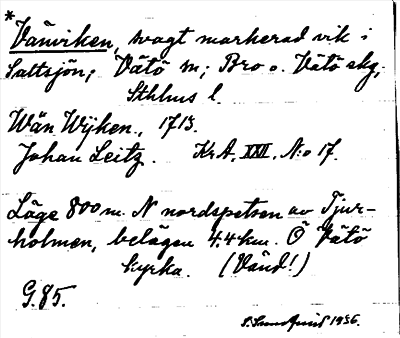 *
Vänviken, svagt markerad vik i
Saltsjön; Vätö sn; Bro o. Vätö skg;
Sthlms l.
Wän Wijken., 1715.
Johan Leitz. Kr.A. XXII, N:o 17.
Läge 800 m. N nordspetsen av Tjur-
holmen, belägen 4.4 km. Ö Vätö
kyrka. (Vänd!)
G. 85.
S. Sundquist 1936.